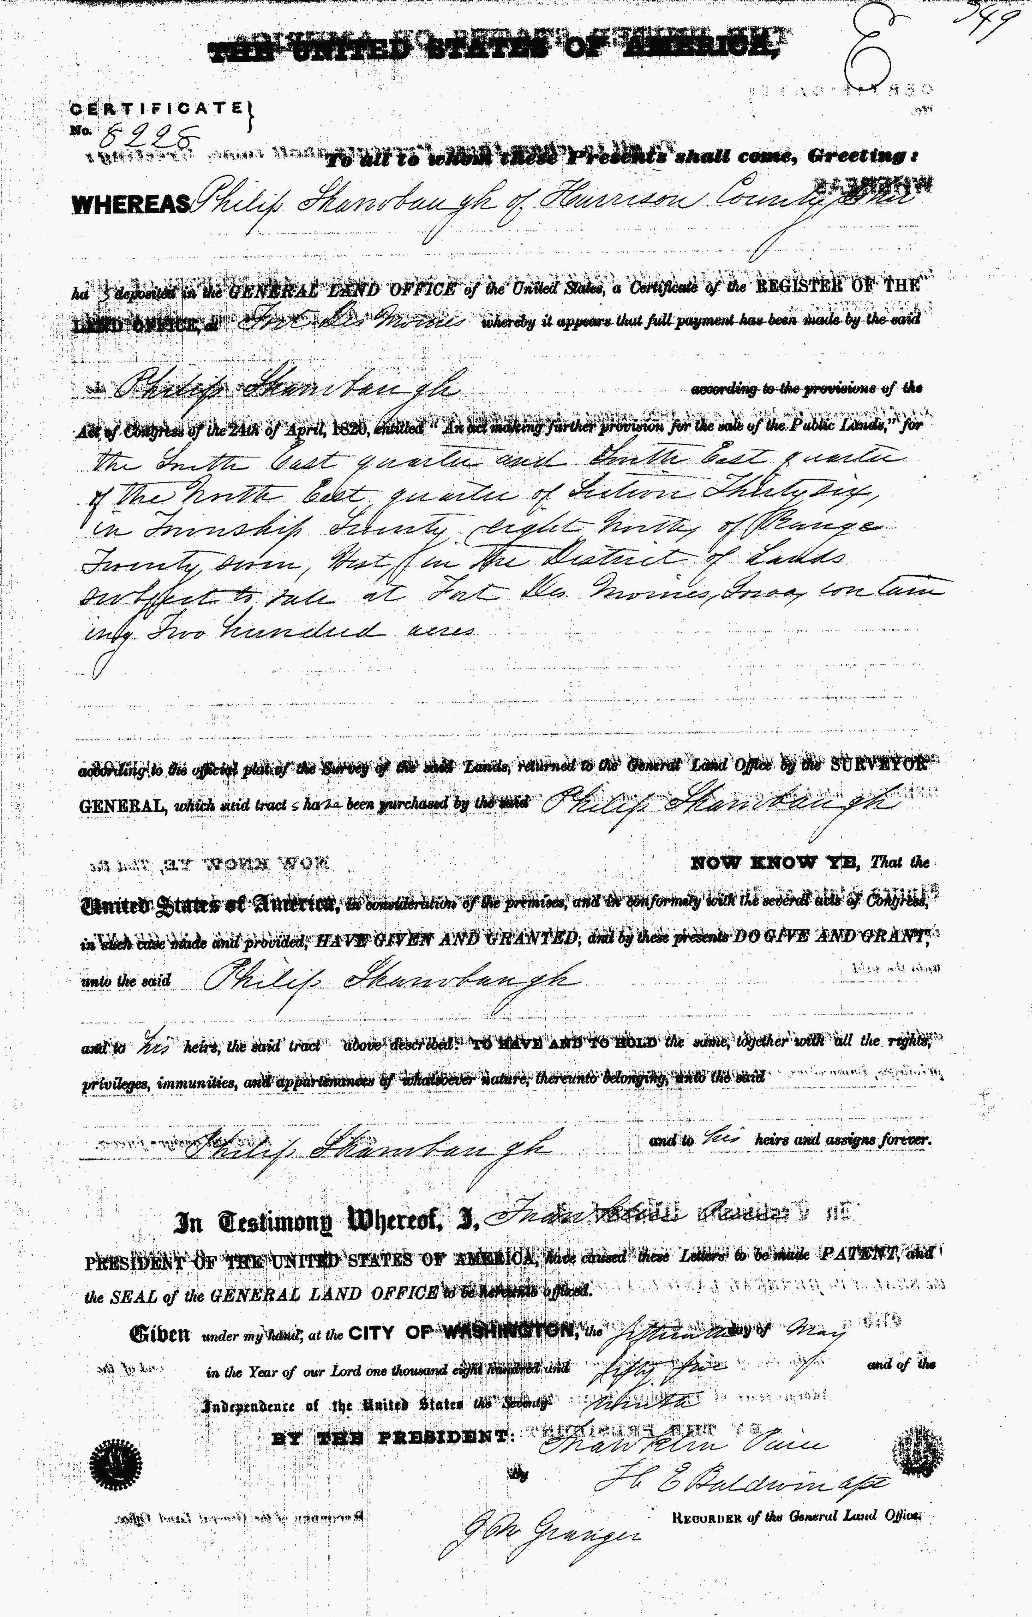 349
E
THE UNITED STATES OF AMERICA,
CERTIFICATE
No. 8228
To all to whom these Presents shall come, Greeting:
WHEREAS Philip Shambaugh of Harrison County Ohio
ha s deposited in the GENERAL LAND OFFICE of the United States, a Certificate of the REGISTER OF THE
LAND OFFICE, at Fort Des Moines whereby it appears that full payment has been made by the said
Philip Shambaugh according to the provisions of the
Act of Congress of the 24th of April, 1820, entitled "An act making further provision for the sale of the Public Lands," for
the South East quarter and South East quarter
of the North East quarter of Section Thirty six,
in Township Seventy eight North, of Range
Twenty seven, West, in the District of Lands
subject to sale at Fort Des Moines, Iowa, contain
ing Two hundred acres
according to the official plat of the Survey of the said Lands, returned to the General Land Office by the SURVEYOR
GENERAL, which said tract s ha ve been purchased by the said Philip Shambaugh
NOW KNOW YE, That the
United States of America, in consideration of the premises, and in conformity with the several acts of Congress,
in such case made and provided, HAVE GIVEN AND GRANTED, and by these presents DO GIVE AND GRANT,
unto the said Philip Shambaugh
and to his heirs, the said tract above described: TO HAVE AND TO HOLD the same, together with all the rights,
privileges, immunities, and appurtenances of whatsoever nature, thereunto belonging, unto the said
Philip Shambaugh and to his heirs and assigns forever.
In Testimony Whereof, I, Franklin Pierce
PRESIDENT OF THE UNITED STATES OF AMERICA, have caused these Letters to be made PATENT, and
the SEAL of the GENERAL LAND OFFICE to be hereunto affixed.
Given under my hand, at the CITY OF WASHINGTON, the fifteenth day of May
in the Year of our Lord one thousand eight hundred and fifty five and of the
Independence of the United States the Seventy ninth
BY THE PRESIDENT: Franklin Pierce
By H E Baldwin
J N Granger RECORDER of the General Land Office.